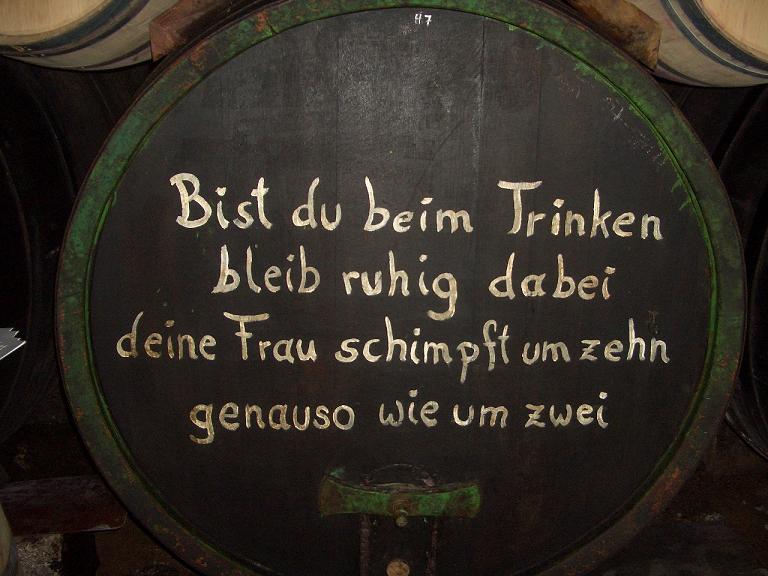 H7
Bist du beim Trinken
bleib ruhig dabei
deine Frau schimpft um zehn
genauso wie um zwei